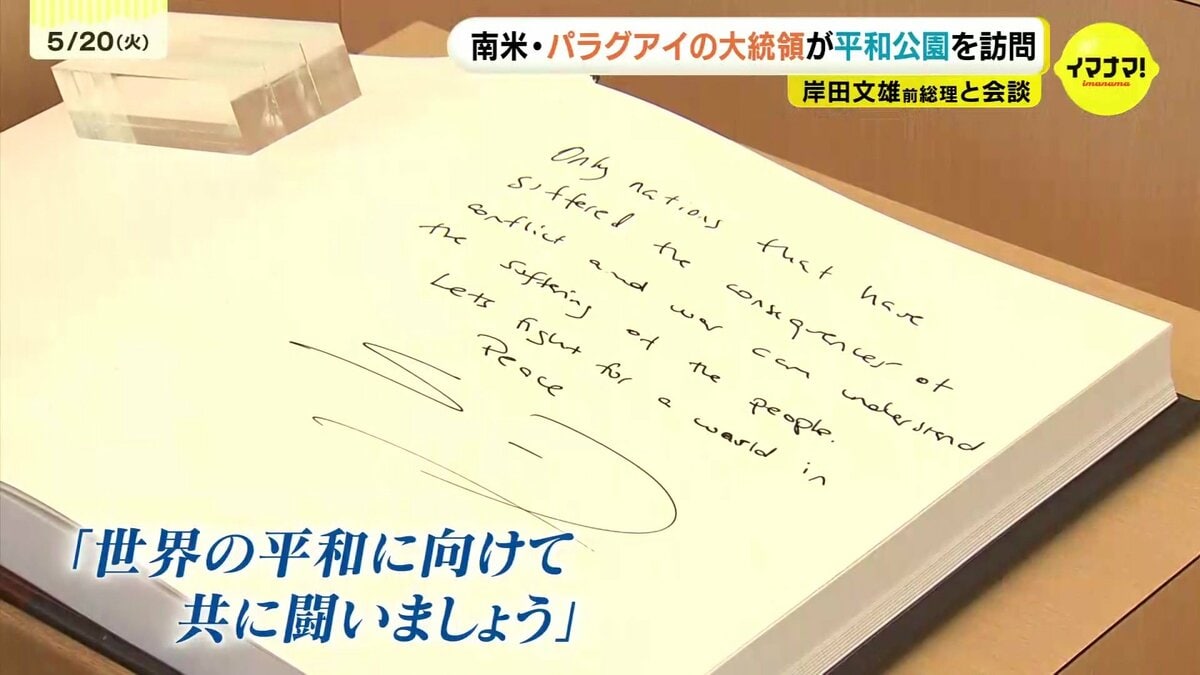 5/20(火)
南米・パラグアイの大統領が平和公園を訪問
岸田文雄前総理と会談
イマナマ!
imanama
Only nations that have
suffered the consequences of
conflict and war can understand
the suffering of the people.
Lets fight for a world in
Peace
「世界の平和に向けて
共に闘いましょう」